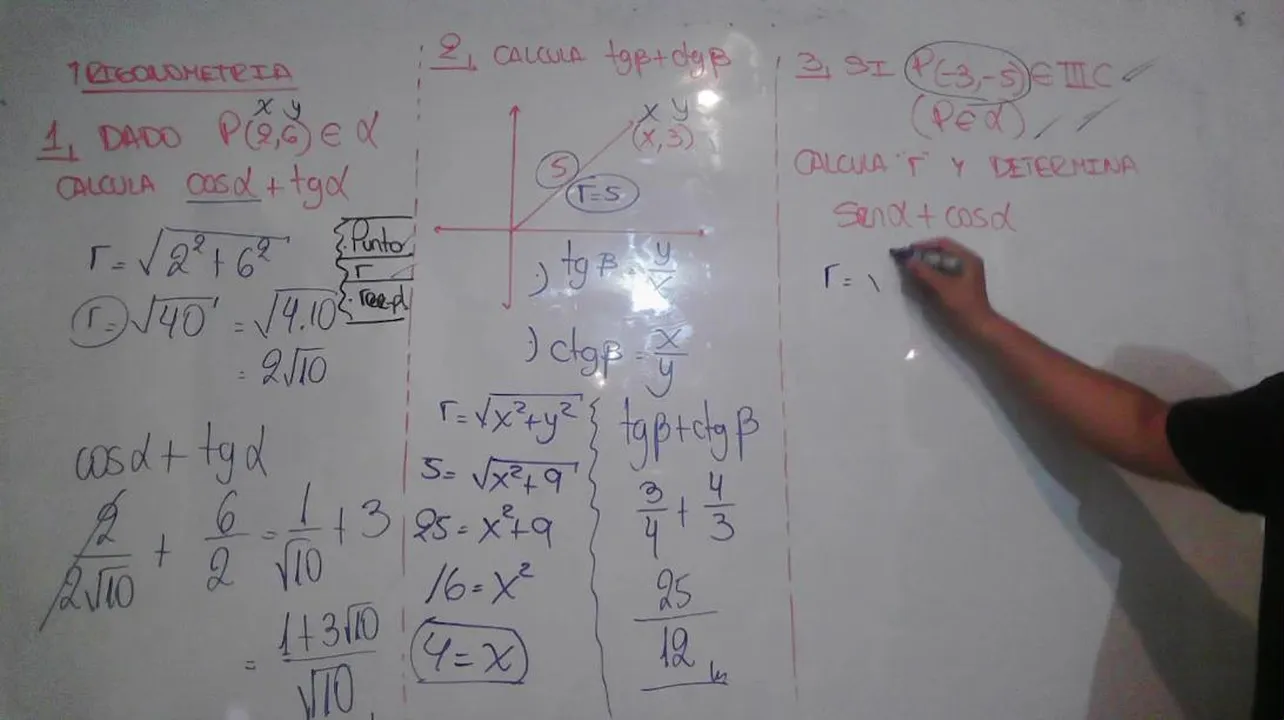 TRIGONOMETRIA
x y
1, DADO P(2,6) ∈ α
CALCULA cosα + tgα
r = √2²+6²
r = √40 = √4.10
= 2√10
{ .Punto
{ r
{ .reepl
cosα + tgα
2/2√10 + 6/2 = 1/√10 + 3
= 1+3√10/√10
2, CALCULA tgβ+ctgβ
x y
(x,3)
5
r=5
·) tgβ = y/x
·) ctgβ = x/y
r = √x²+y²
5 = √x²+9
25 = x²+9
16 = x²
4 = x
tgβ+ctgβ
3/4 + 4/3
25/12
3, SI P(-3,-5) ∈ IIIC ✓
(P∈α)
CALCULA "r" Y DETERMINA
senα + cosα
r = √